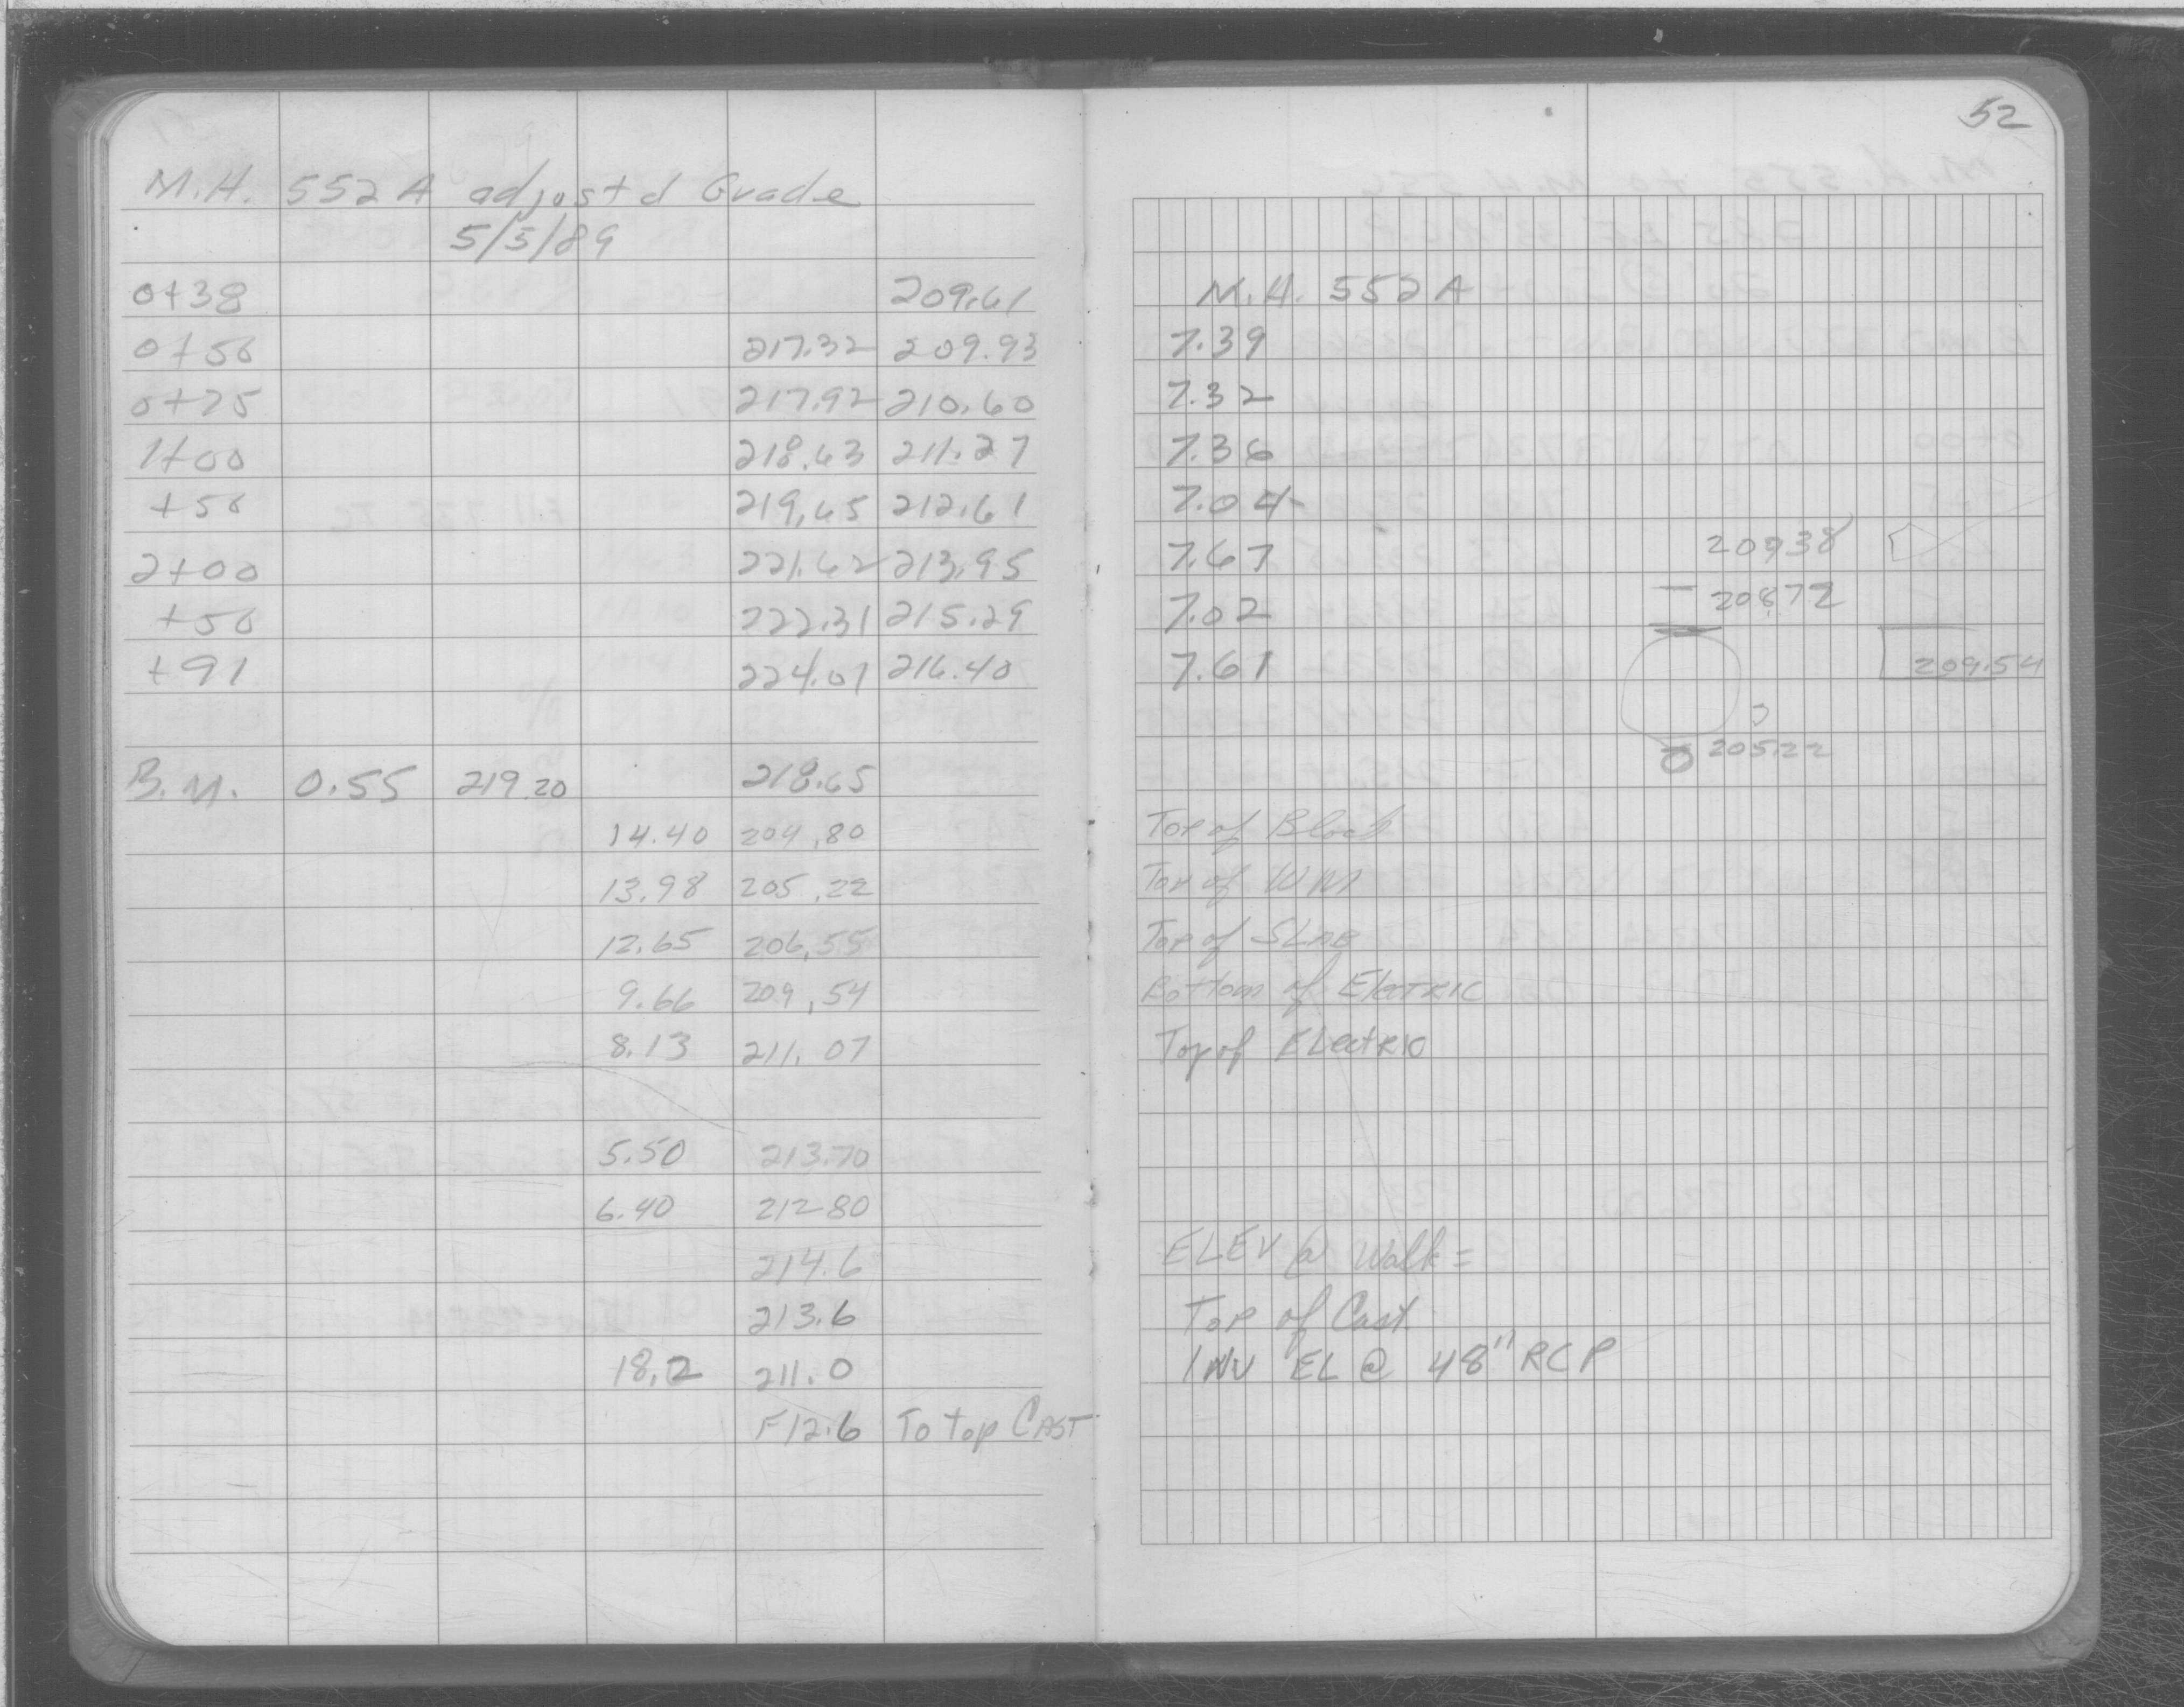 52
M.H. 552A adjustd Grade
5/3/89
0+38 209.61 M.H. 552A
0+50 217.32 209.93 7.39
0+75 217.92 210.60 7.32
1+00 218.63 211.27 7.36
+50 219.65 212.61 7.04
2+00 221.62 213.95 7.67 20938
+50 222.31 215.29 7.02 20872
+91 224.01 216.40 7.61 209.54
20522
B.M. 0.55 219.20 218.65
14.40 204.80 Top of Block
13.98 205.22 Top of WM
12.65 206.55 Top of SLAB
9.66 209.54 Bottom of Electric
8.13 211.07 Top of Electric
5.50 213.70
6.40 212 80
214.6 ELEV @ Walk =
213.6 Top of Cast
18.2 211.0 INV EL @ 48" RCP
F12.6 To top CAST